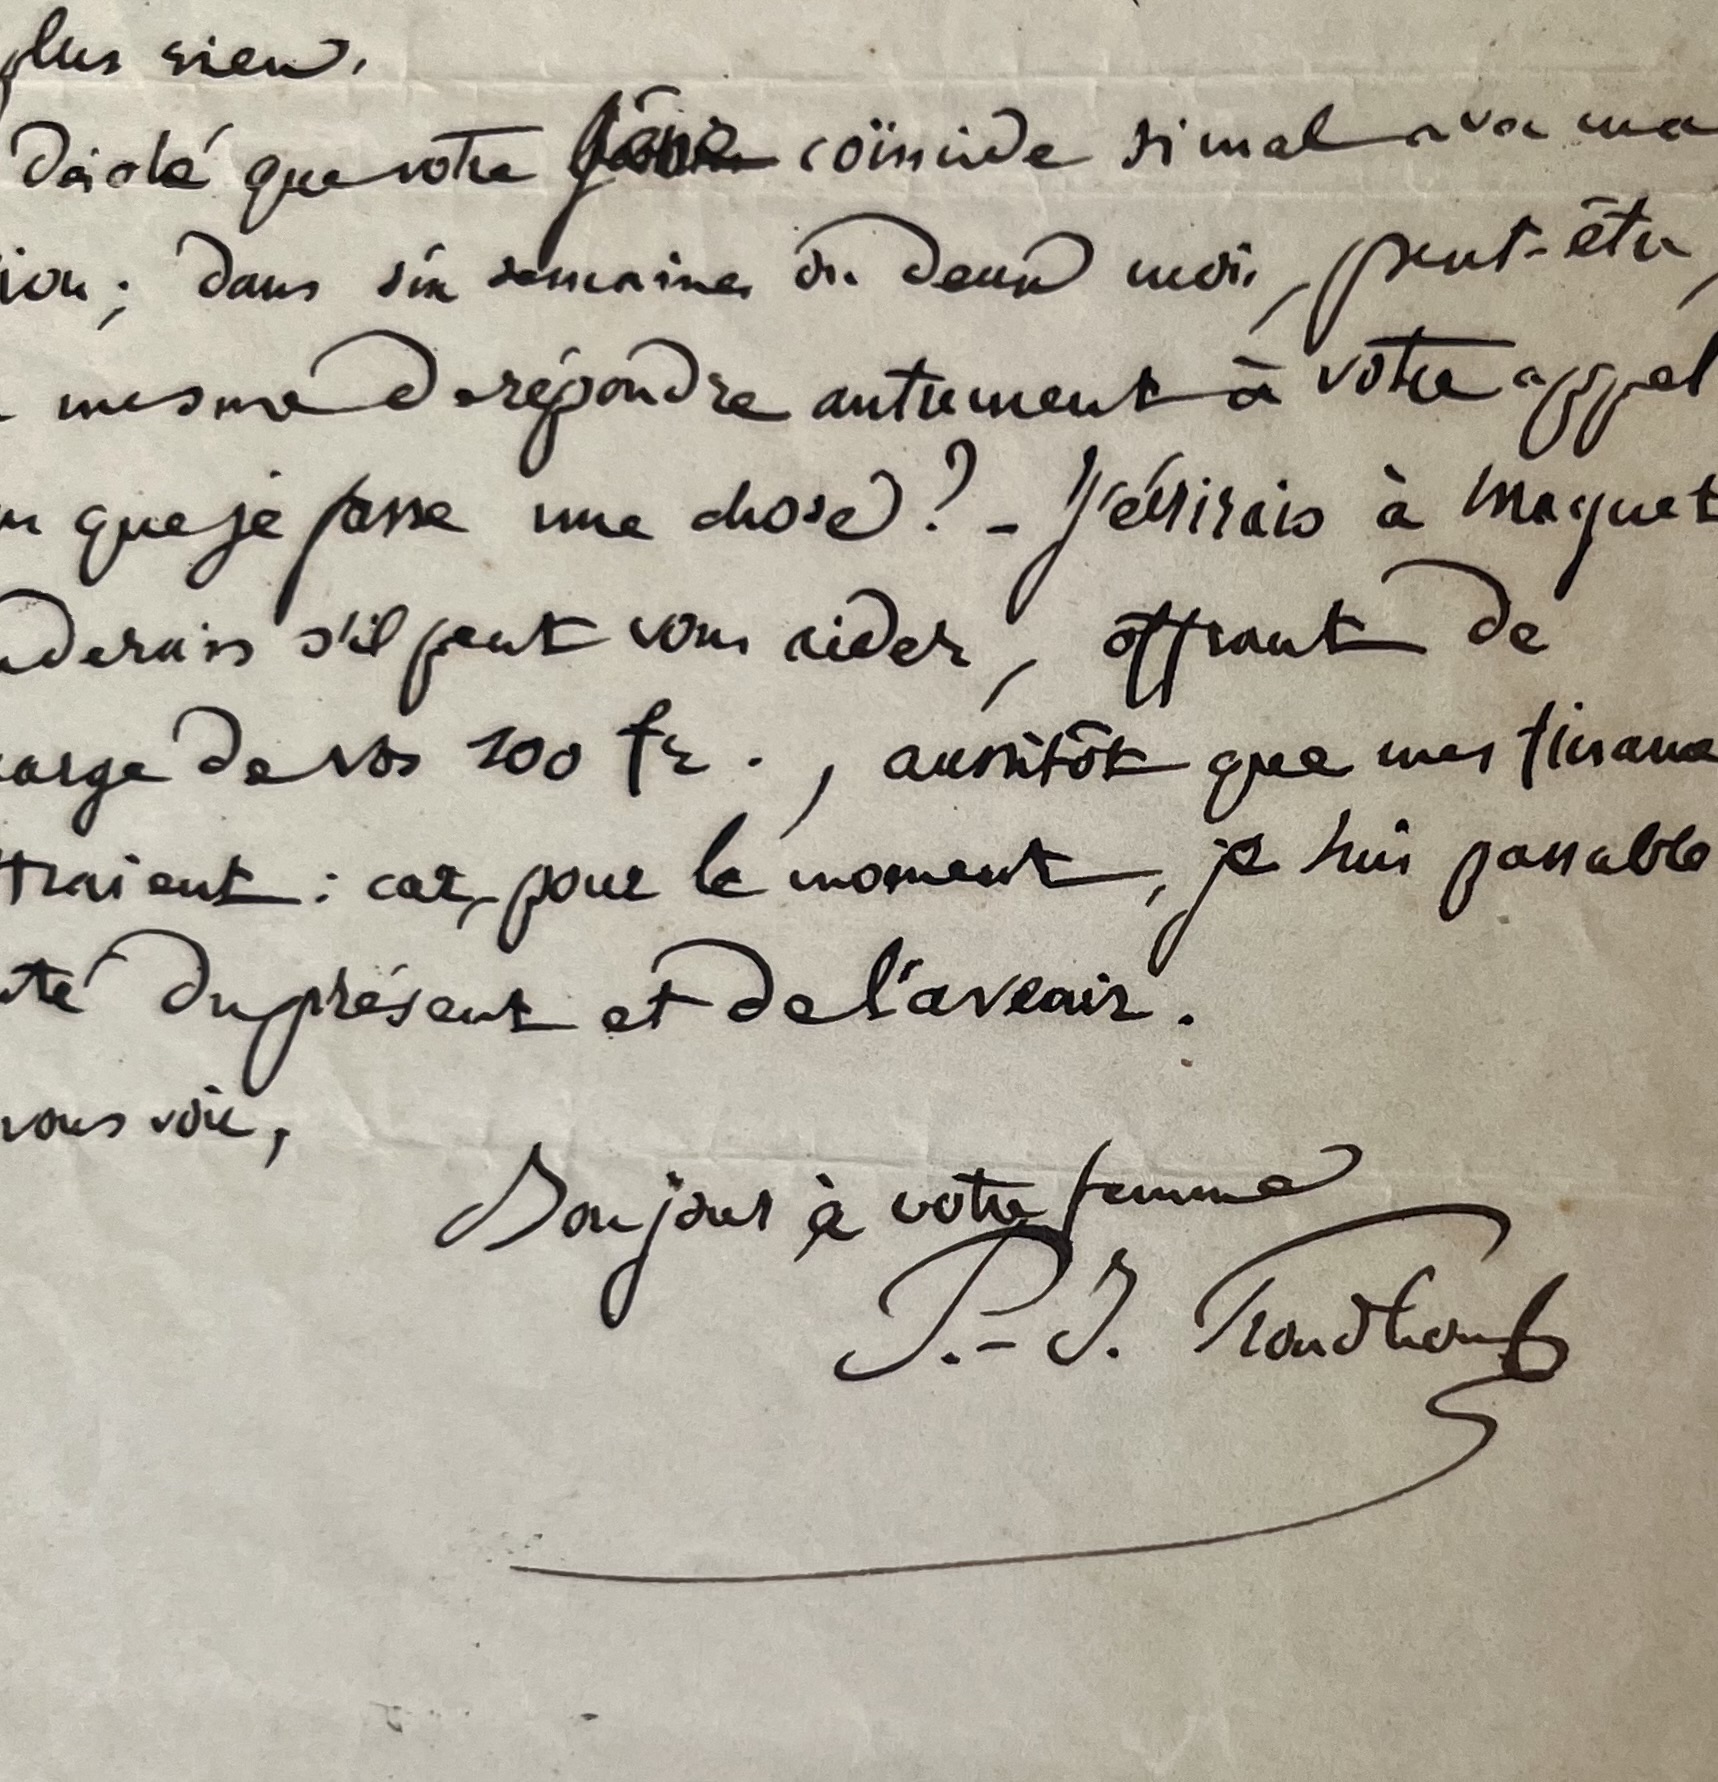 plus rien.
désolé que votre gêne coïncide si mal avec ma
tion ; dans six semaines ou deux mois, peut-être,
mesme de répondre autrement à votre appel
que je fasse une chose ? - J'écrirais à Maquet
nderais s'il peut vous aider, offrant de
charge de vos 100 fr., aussitôt que mes finances
ttraient : car, pour le moment, je suis passable
nté du présent et de l'avenir.
vous voir,
Bonjour à votre femme
P.-J. Proudhon